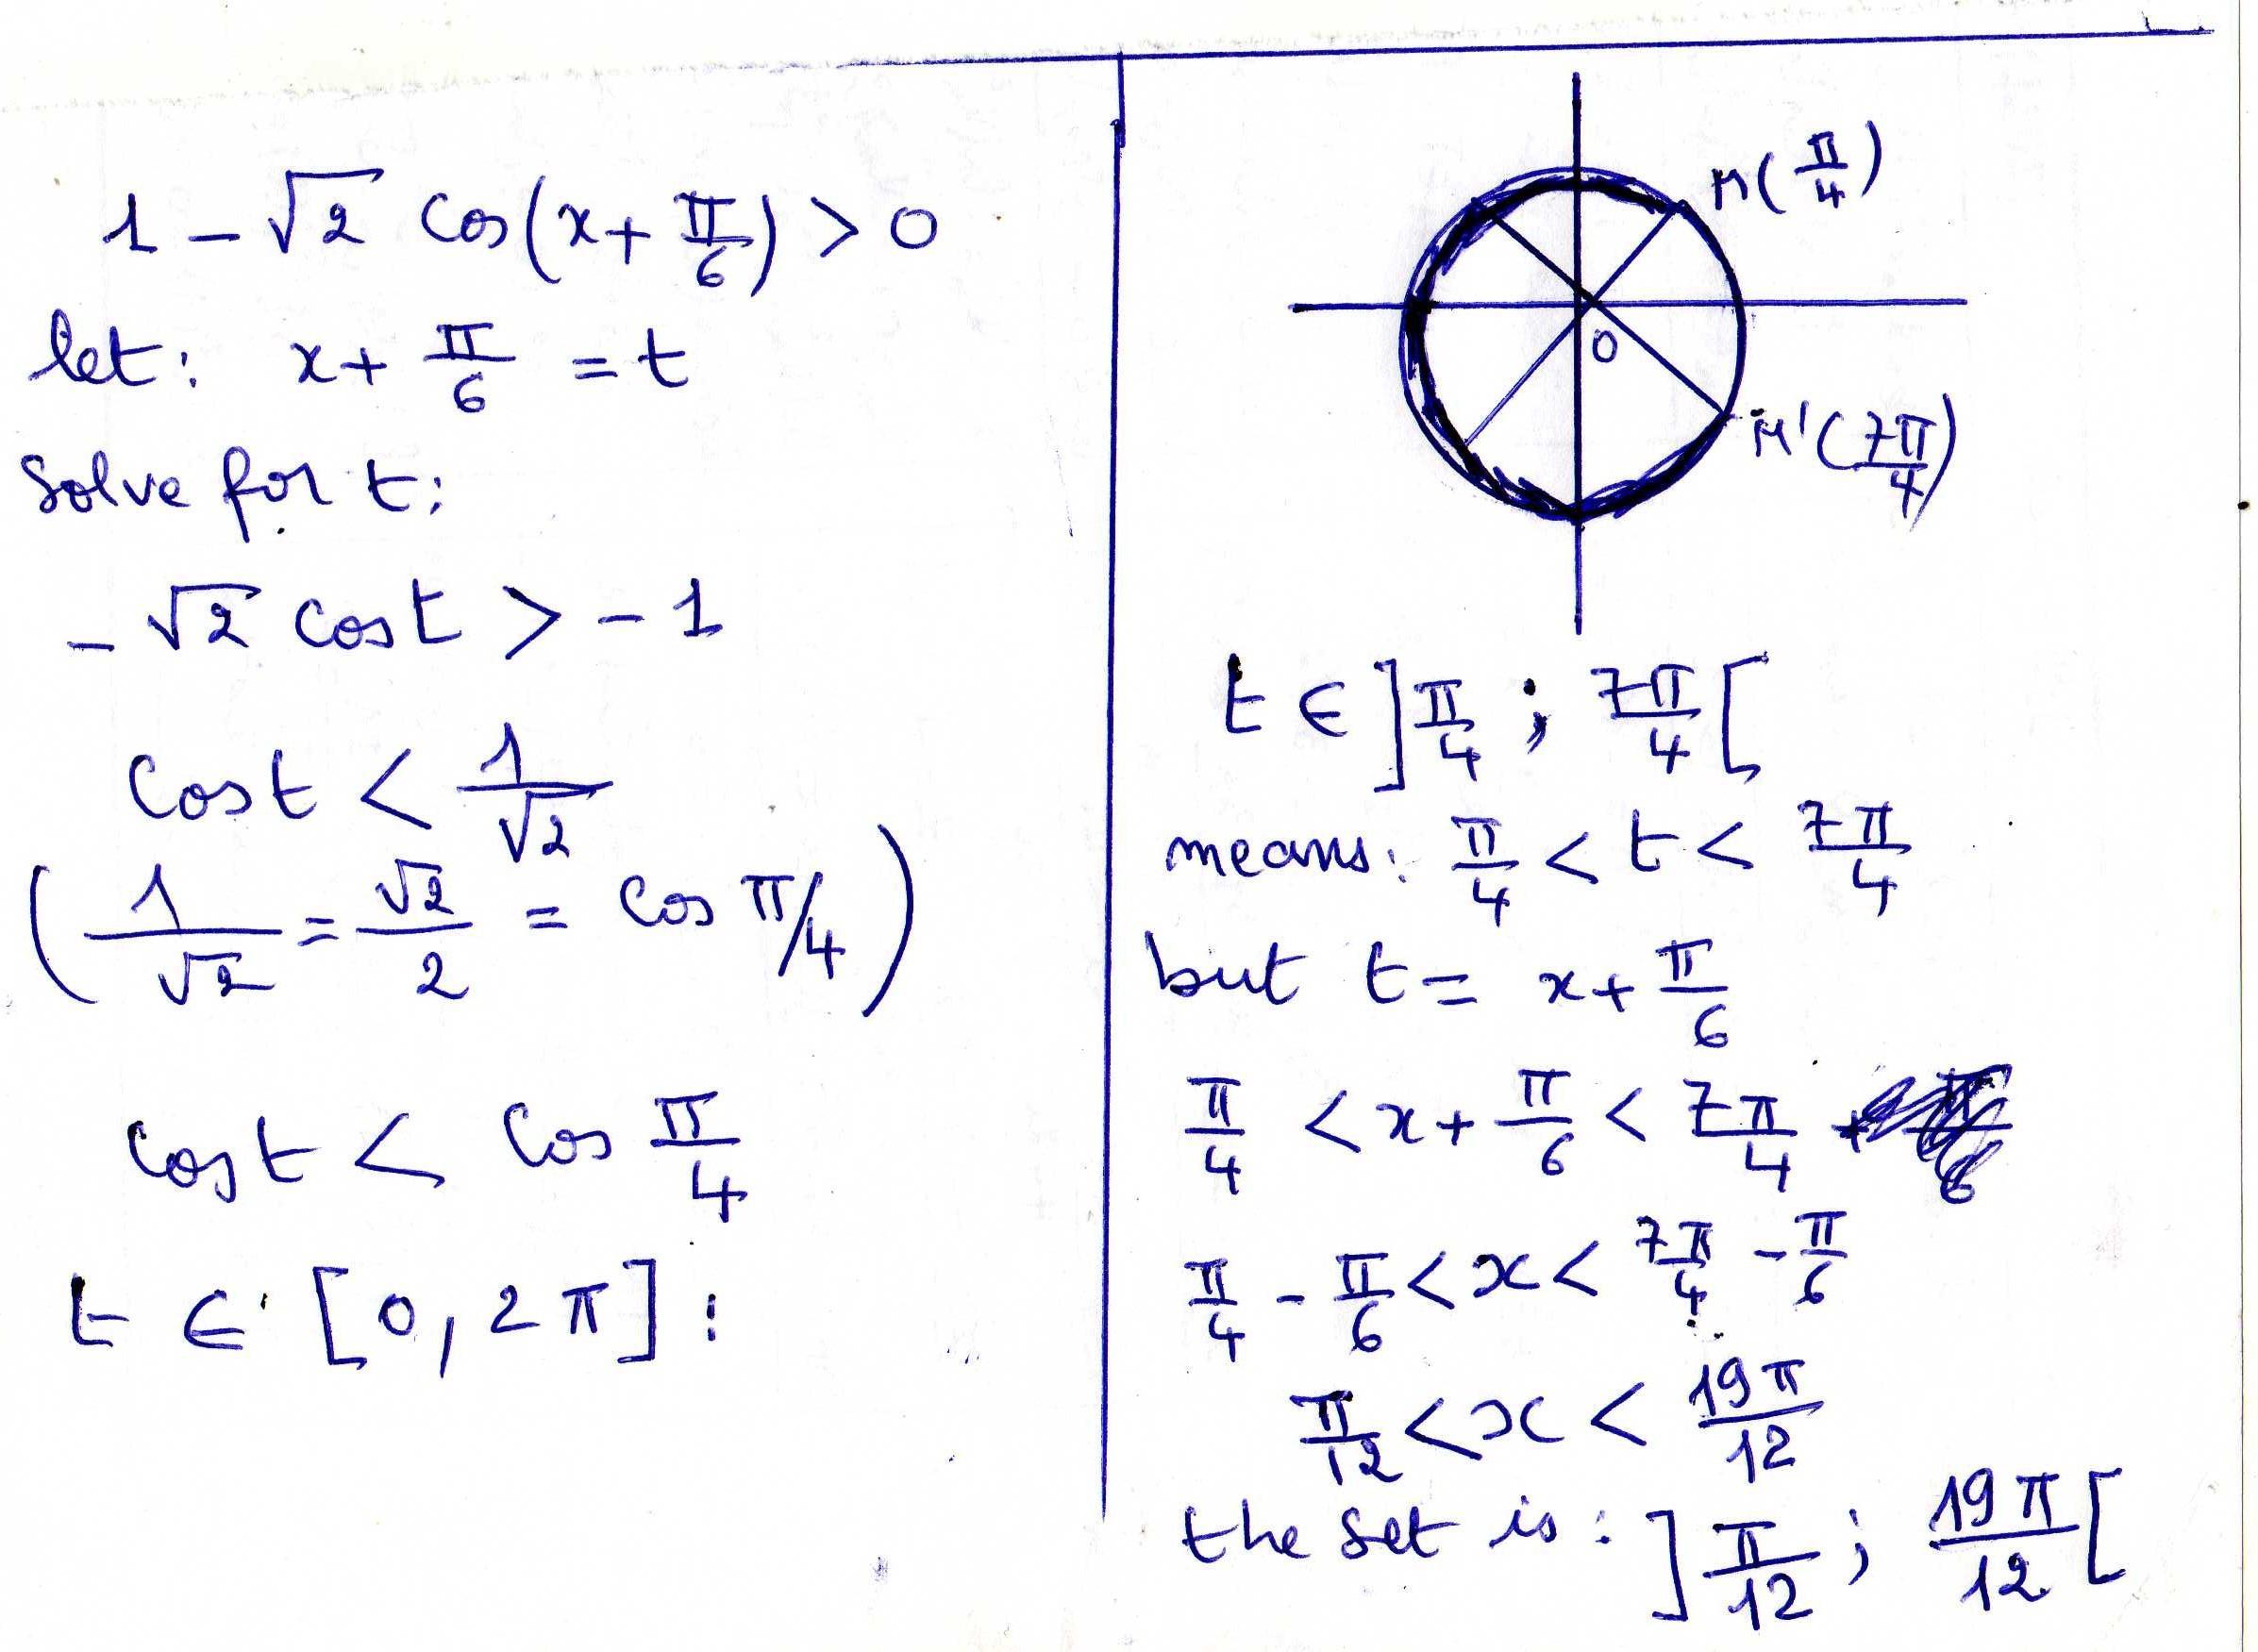 1 - √2 cos(x + π/6) > 0
let: x + π/6 = t
Solve for t:
- √2 cos t > - 1
cos t < 1/√2
(1/√2 = √2/2 = cos π/4)
cos t < cos π/4
t ∈ [0, 2π] :
M(π/4)
O
M'(7π/4)
t ∈ ]π/4 ; 7π/4[
means: π/4 < t < 7π/4
but t = x + π/6
π/4 < x + π/6 < 7π/4
π/4 - π/6 < x < 7π/4 - π/6
π/12 < x < 19π/12
the set is : ]π/12 ; 19π/12[